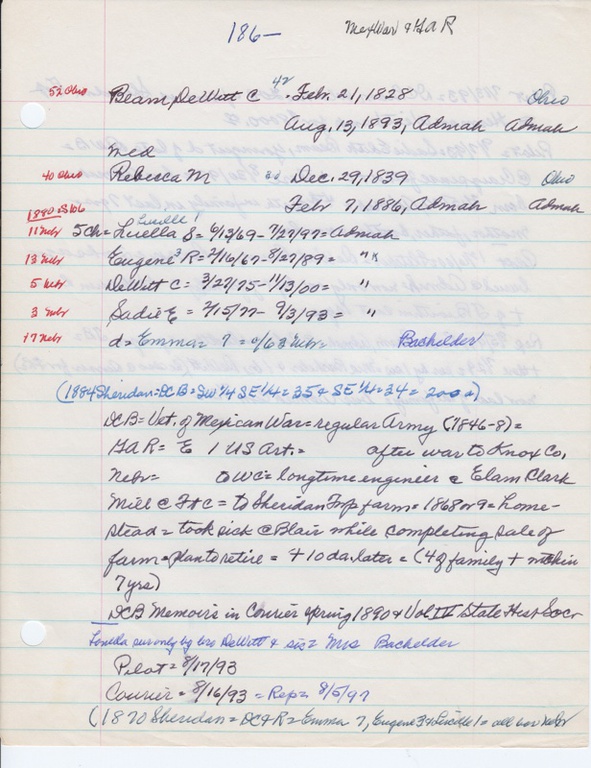 186—
MexWar & GAR
52 Ohio Beam, DeWitt C 42 . Feb. 21, 1828 Ohio
Aug. 13, 1893, Admah Admah
med
40 Ohio Rebecca M Dec. 29, 1839 Ohio
Feb 7, 1886, Admah Admah
1880=S106
Lucille 1
11 Nebr 5 Ch = Luella S = 6/13/69 - 7/27/97 = Admah
13 Nebr Eugene 3 R = 2/16/67 - 8/27/89 = " "
5 Nebr DeWitt C = 3/27/75 - 11/13/00 = "
3 Nebr Sadie E = 2/15/77 - 9/3/93 = "
17 Nebr d = Emma = 7 = 0/63 Nebr = Bachelder
(1884 Sheridan = DCB = SW 1/4 SE 1/4 = 35 & SE 1/4 = 34 = 200 a)
DCB = Vet. of Mexican War = regular Army (1846-8) =
GAR = E 1 US Art. = after war to Knox Co,
Nebr = OWC = longtime engineer @ Elam Clark
Mill @ Ft C = to Sheridan Twp farm = 1868 or 9 = home-
stead = took sick @ Blair while completing sale of
farm = plan to retire = + 10 da. later = (4 of family + within
7 yrs)
DCB Memoirs in Courier Spring 1890 & Vol IV State Hist Socy
sur only by bro DeWitt & sis = Mrs Bachelder
Pilot = 8/17/93
Courier = 8/16/93 = Rep = 8/5/97
(1870 Sheridan = DC & R = Emma 7, Eugene 3 & Lucille 1 = all bor Nebr